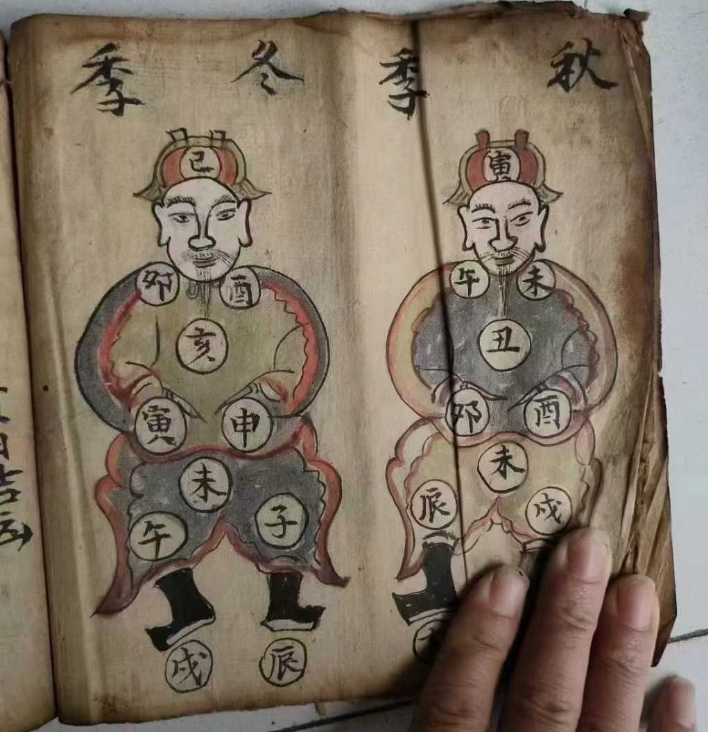 秋季
寅
午 未
丑
夘 酉
未
辰 戌
冬季
巳
夘 酉
亥
寅 申
未
午 子
戌 辰